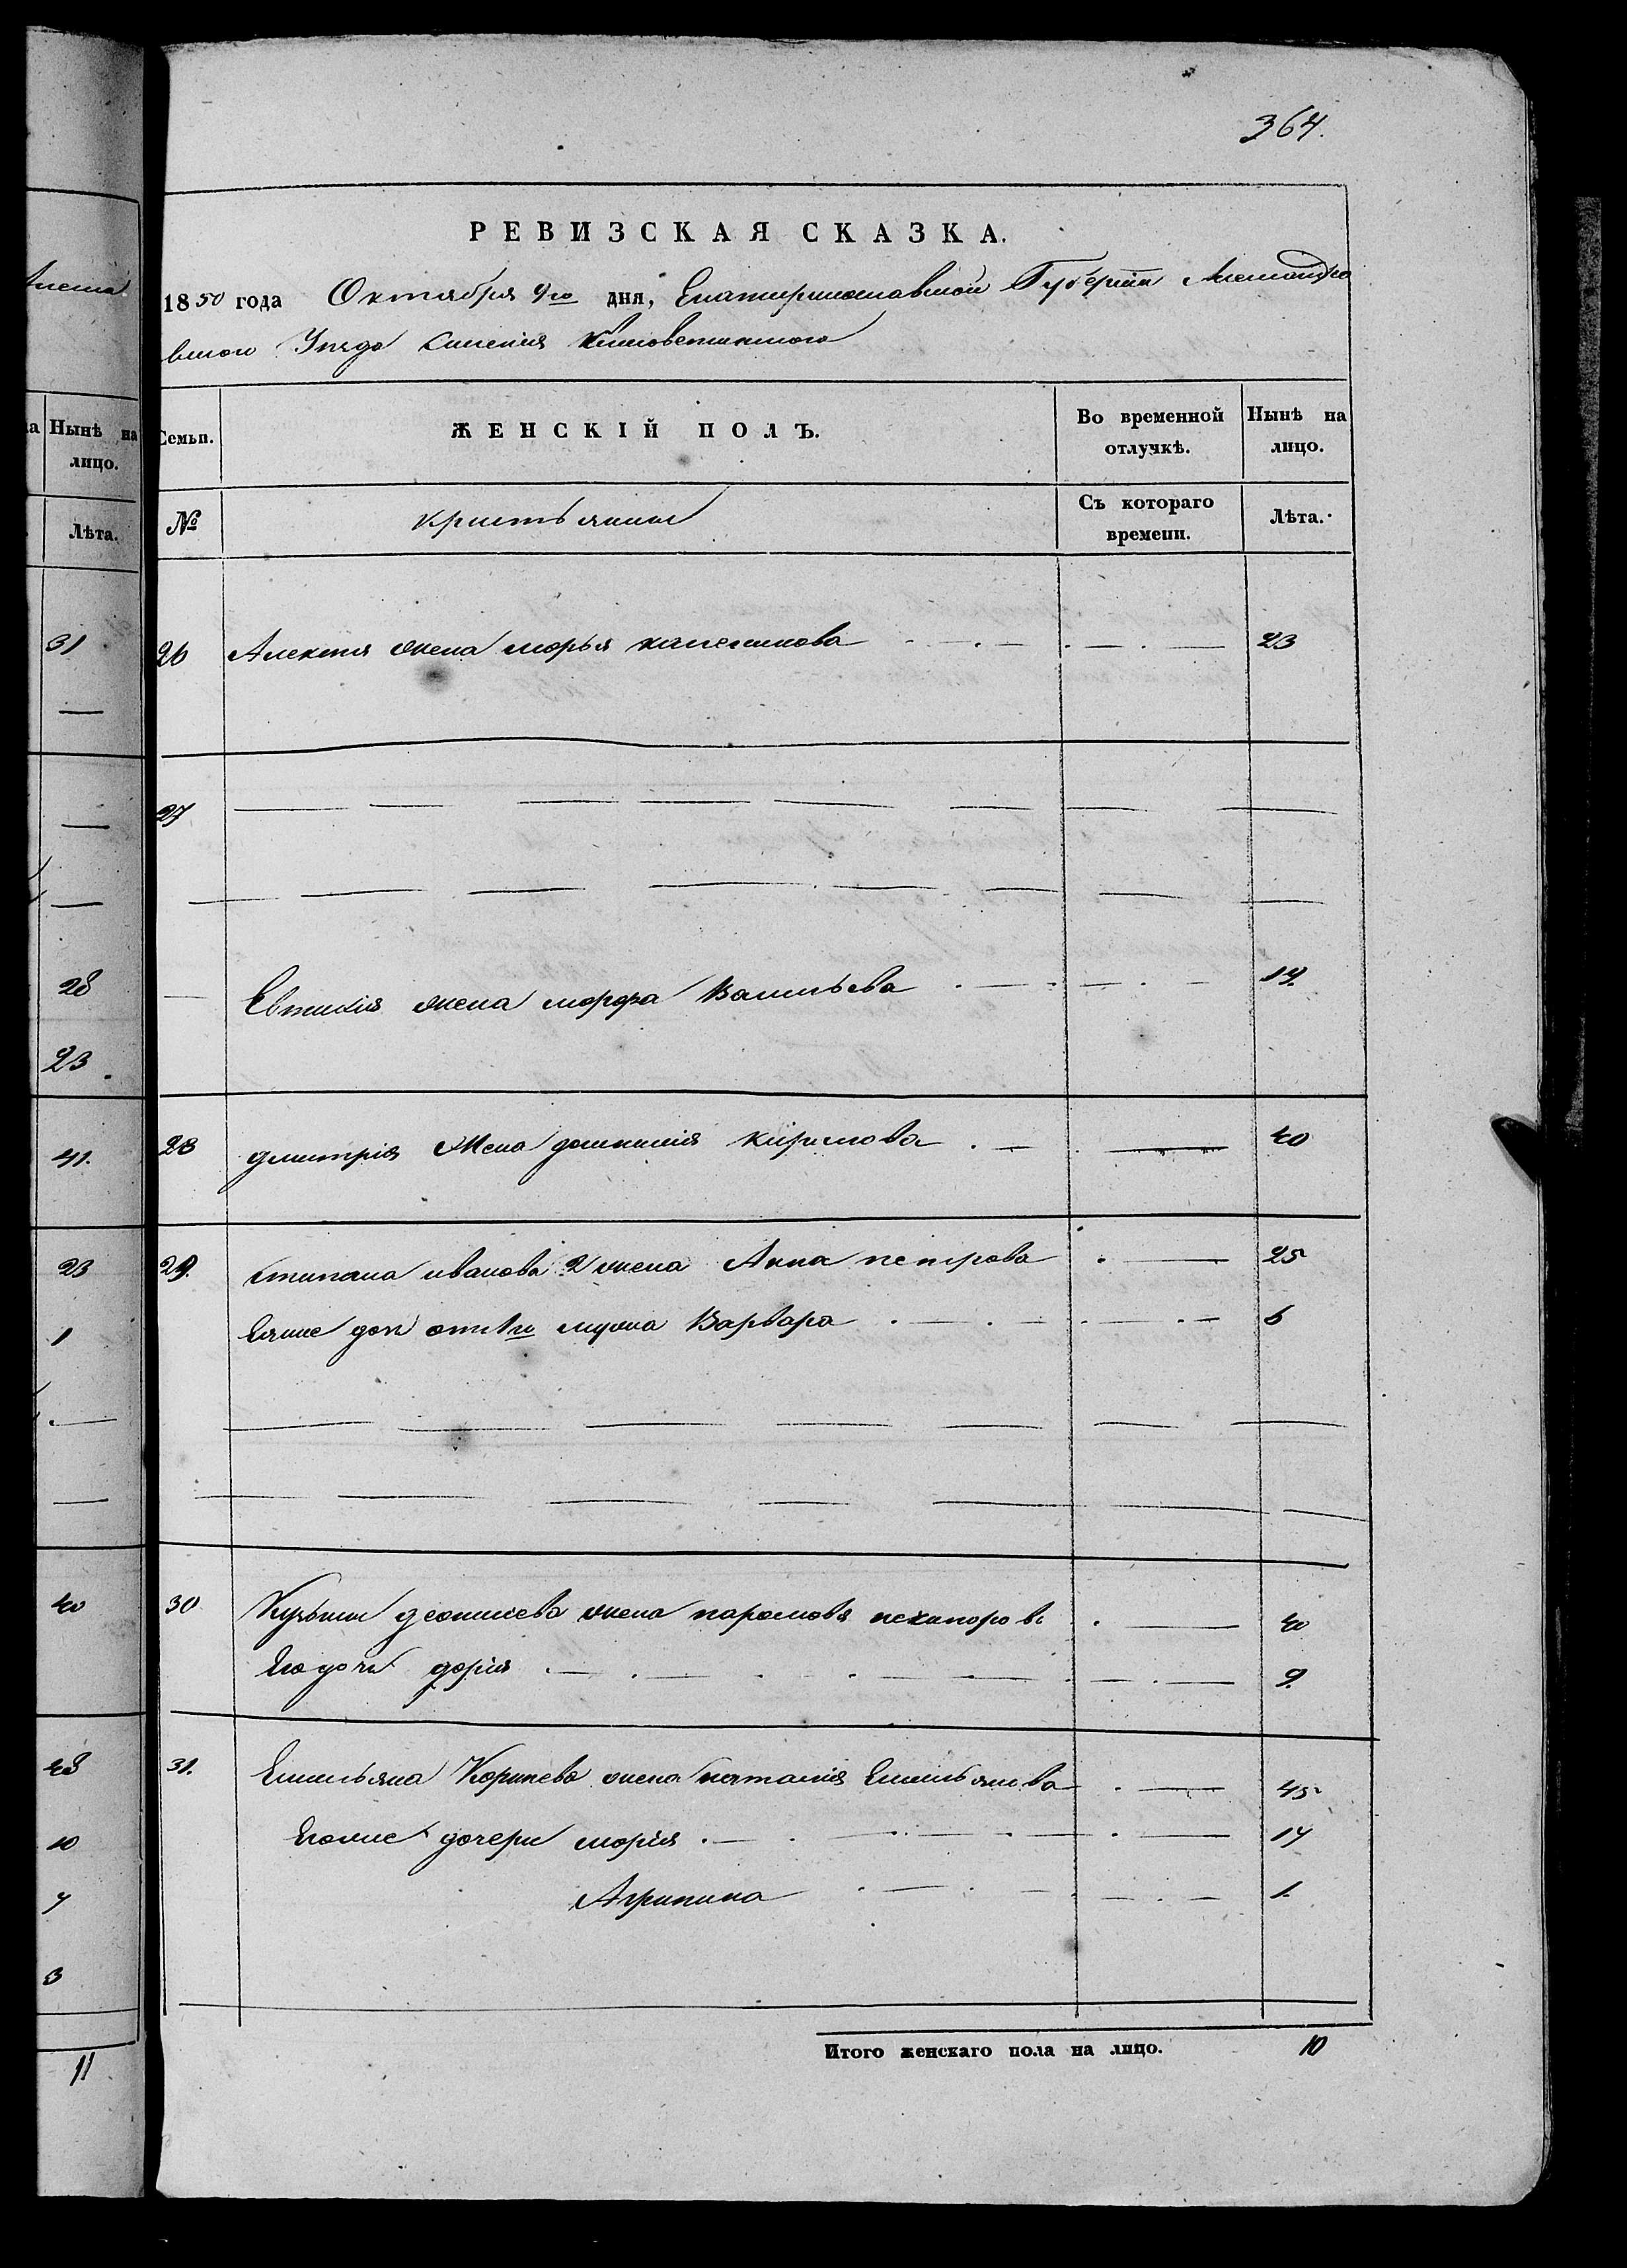 364.
РЕВИЗСКАЯ СКАЗКА.
1850 года Октября 9го дня, Екатеринославской Губерніи Александро
вского Уезда селения
Семьи. ЖЕНСКІЙ ПОЛЪ. Во временной отлучкѣ. Нынѣ на лицо.
№ Съ котораго времени. Лѣта.
26 Алексея жена марья 23
27
Евтихія жена марфа Васильева 19.
28 дмитрія Жена домникия кирилова 40
29. степана иванова 2 жена Анна петрова 25
еяже доч от 1го мужа Варвара 6
30 Кузьмы жена 40
Его дочь дария 9.
31. Емельяна жена наталия Емельянова 45
Егоже дочери мория 14
Агрипина 1.
Итого женскаго пола на лицо. 10
Нынѣ на лицо.
Лѣта.
31
28
23
41.
23
1
40
48
10
7
3
11